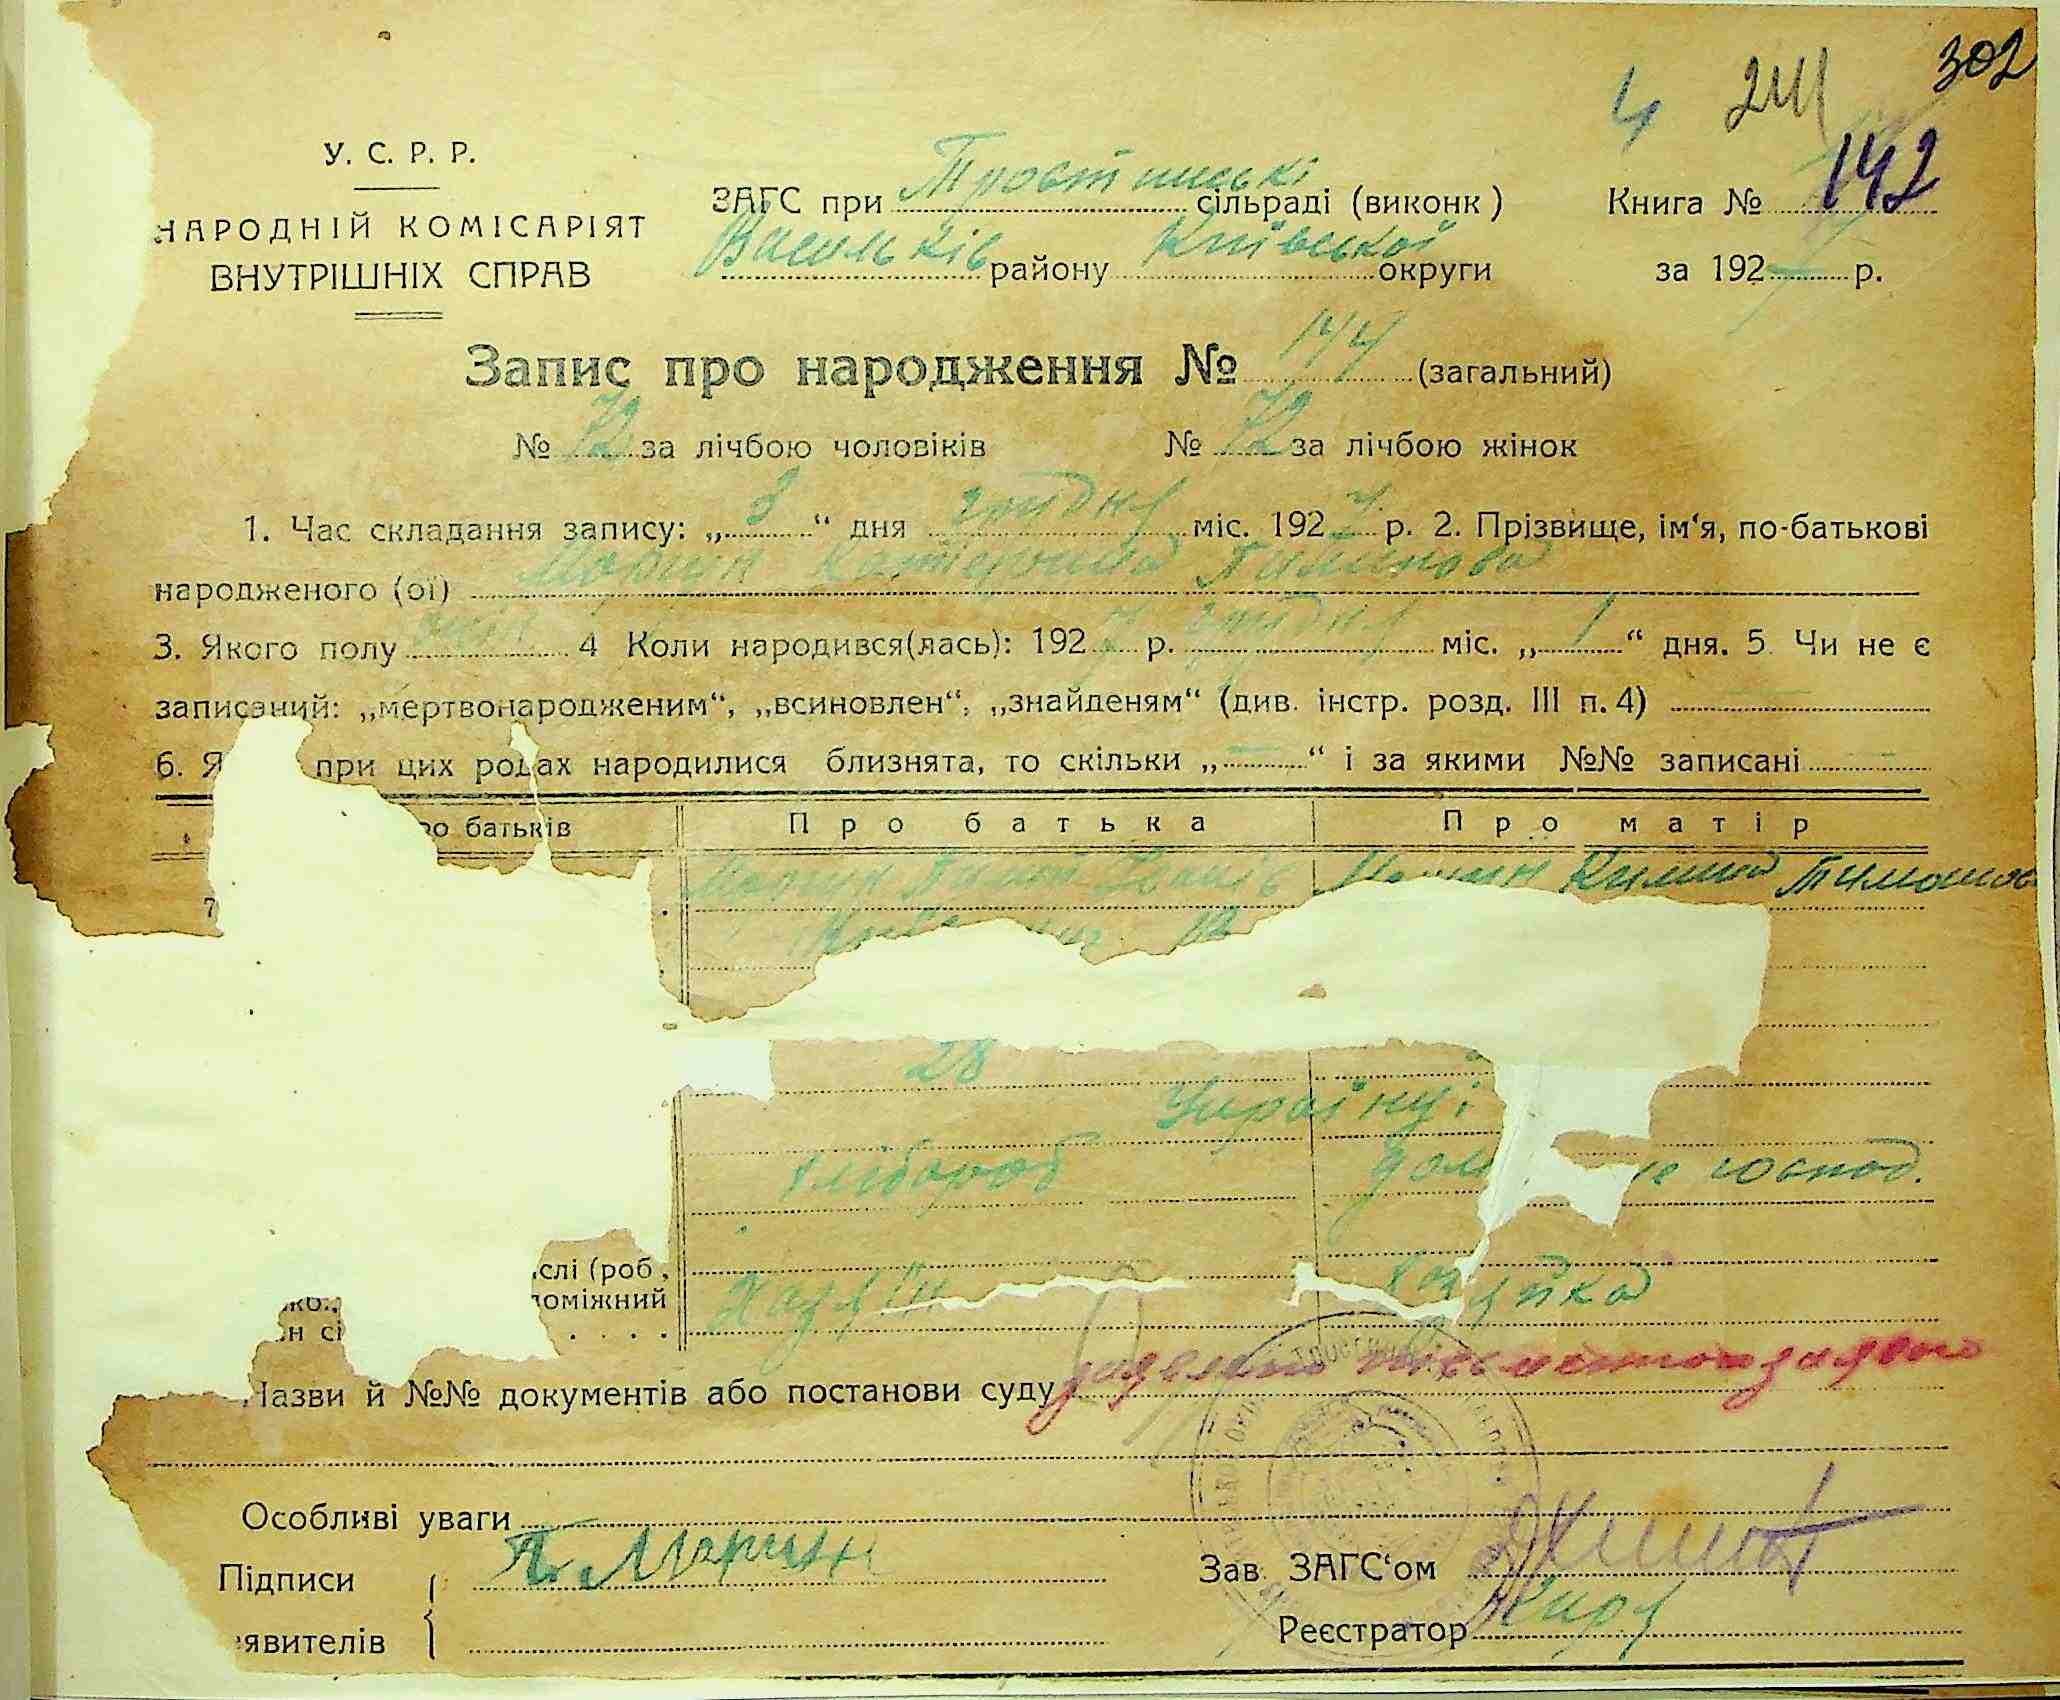 302
4 241
142
У. С. Р. Р.
НАРОДНІЙ КОМІСАРІЯТ
ВНУТРІШНІХ СПРАВ
ЗАГС при Тростинські сільраді (виконк)
Васильків району Київської округи
Книга №
за 1927 р.
Запис про народження № 144 (загальний)
№ 72 за лічбою чоловіків № 72 за лічбою жінок
1. Час складання запису: „3“ дня грудня міс. 1927 р. 2. Прізвище, ім‘я, по-батькові
народженого (ої) Марин Катерина Пилипова
3. Якого полу жін 4 Коли народився(лась): 1927 р. грудня міс. „1“ дня. 5. Чи не є
записаний: „мертвонародженим“, „всиновлен“, „знайденям“ (див. інстр. розд. III п. 4)
6. Я при цих родах народилися близнята, то скільки „—“ і за якими №№ записані —
ро батьків Про батька Про матір
7 Марин Пилип Марин
12
28
Українці
хлібороб господ.
слі (роб.,
поміжний Хазяїн хазяйка
н сі
Назви й №№ документів або постанови суду заявлено письменною заявою
Особливі уваги
Підписи П. Марин Зав. ЗАГС‘ом
явителів Реєстратор